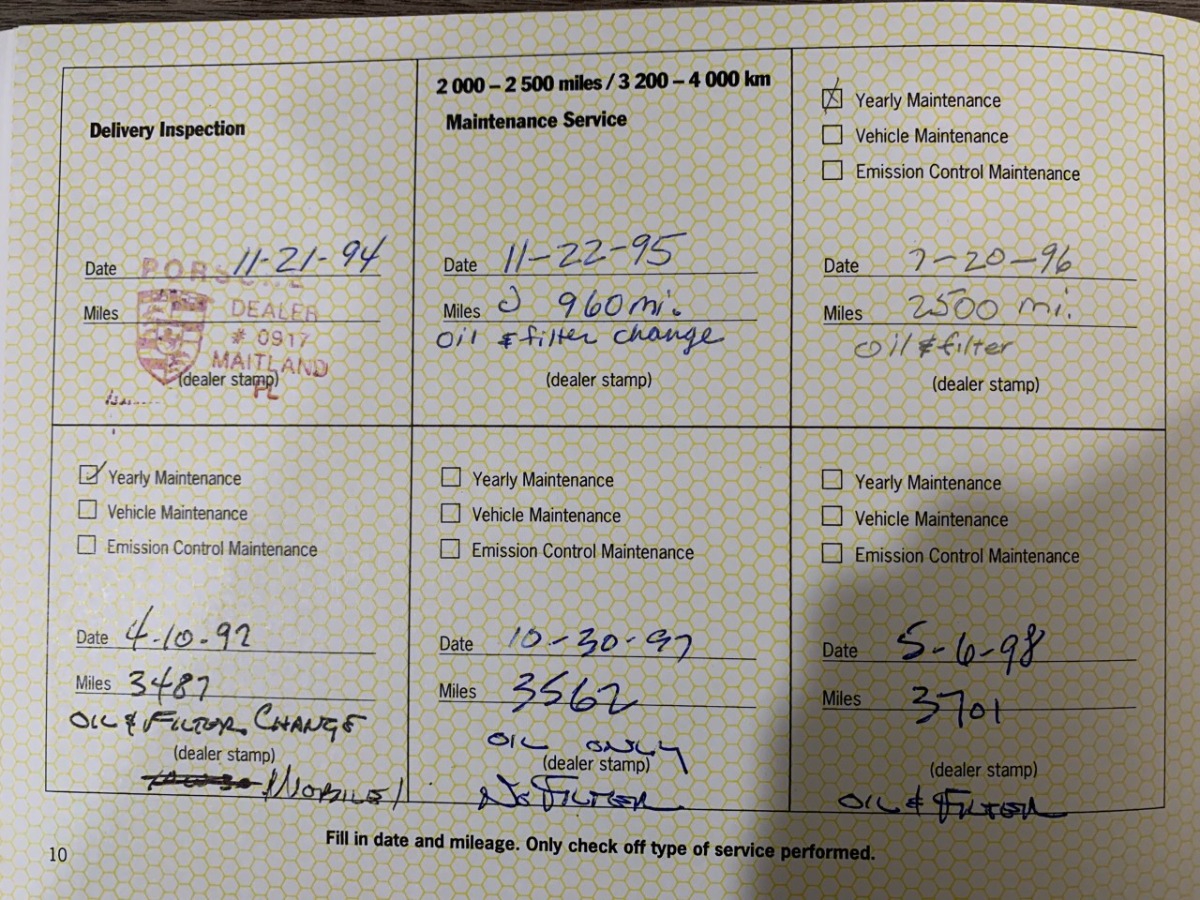 Delivery Inspection
Date 11-21-94
Miles
PORSCHE
DEALER
# 0917
MAITLAND
FL
(dealer stamp)
2 000 – 2 500 miles / 3 200 – 4 000 km
Maintenance Service
Date 11-22-95
Miles 960 mi.
oil & filter change
(dealer stamp)
Yearly Maintenance
Vehicle Maintenance
Emission Control Maintenance
Date 7-20-96
Miles 2500 mi.
oil & filter
(dealer stamp)
Yearly Maintenance
Vehicle Maintenance
Emission Control Maintenance
Date 4-10-97
Miles 3487
OIL & FILTER CHANGE
(dealer stamp)
MOBILE 1
Yearly Maintenance
Vehicle Maintenance
Emission Control Maintenance
Date 10-30-97
Miles 3562
OIL ONLY
(dealer stamp)
NO FILTER
Yearly Maintenance
Vehicle Maintenance
Emission Control Maintenance
Date 5-6-98
Miles 3701
(dealer stamp)
OIL & FILTER
Fill in date and mileage. Only check off type of service performed.
10